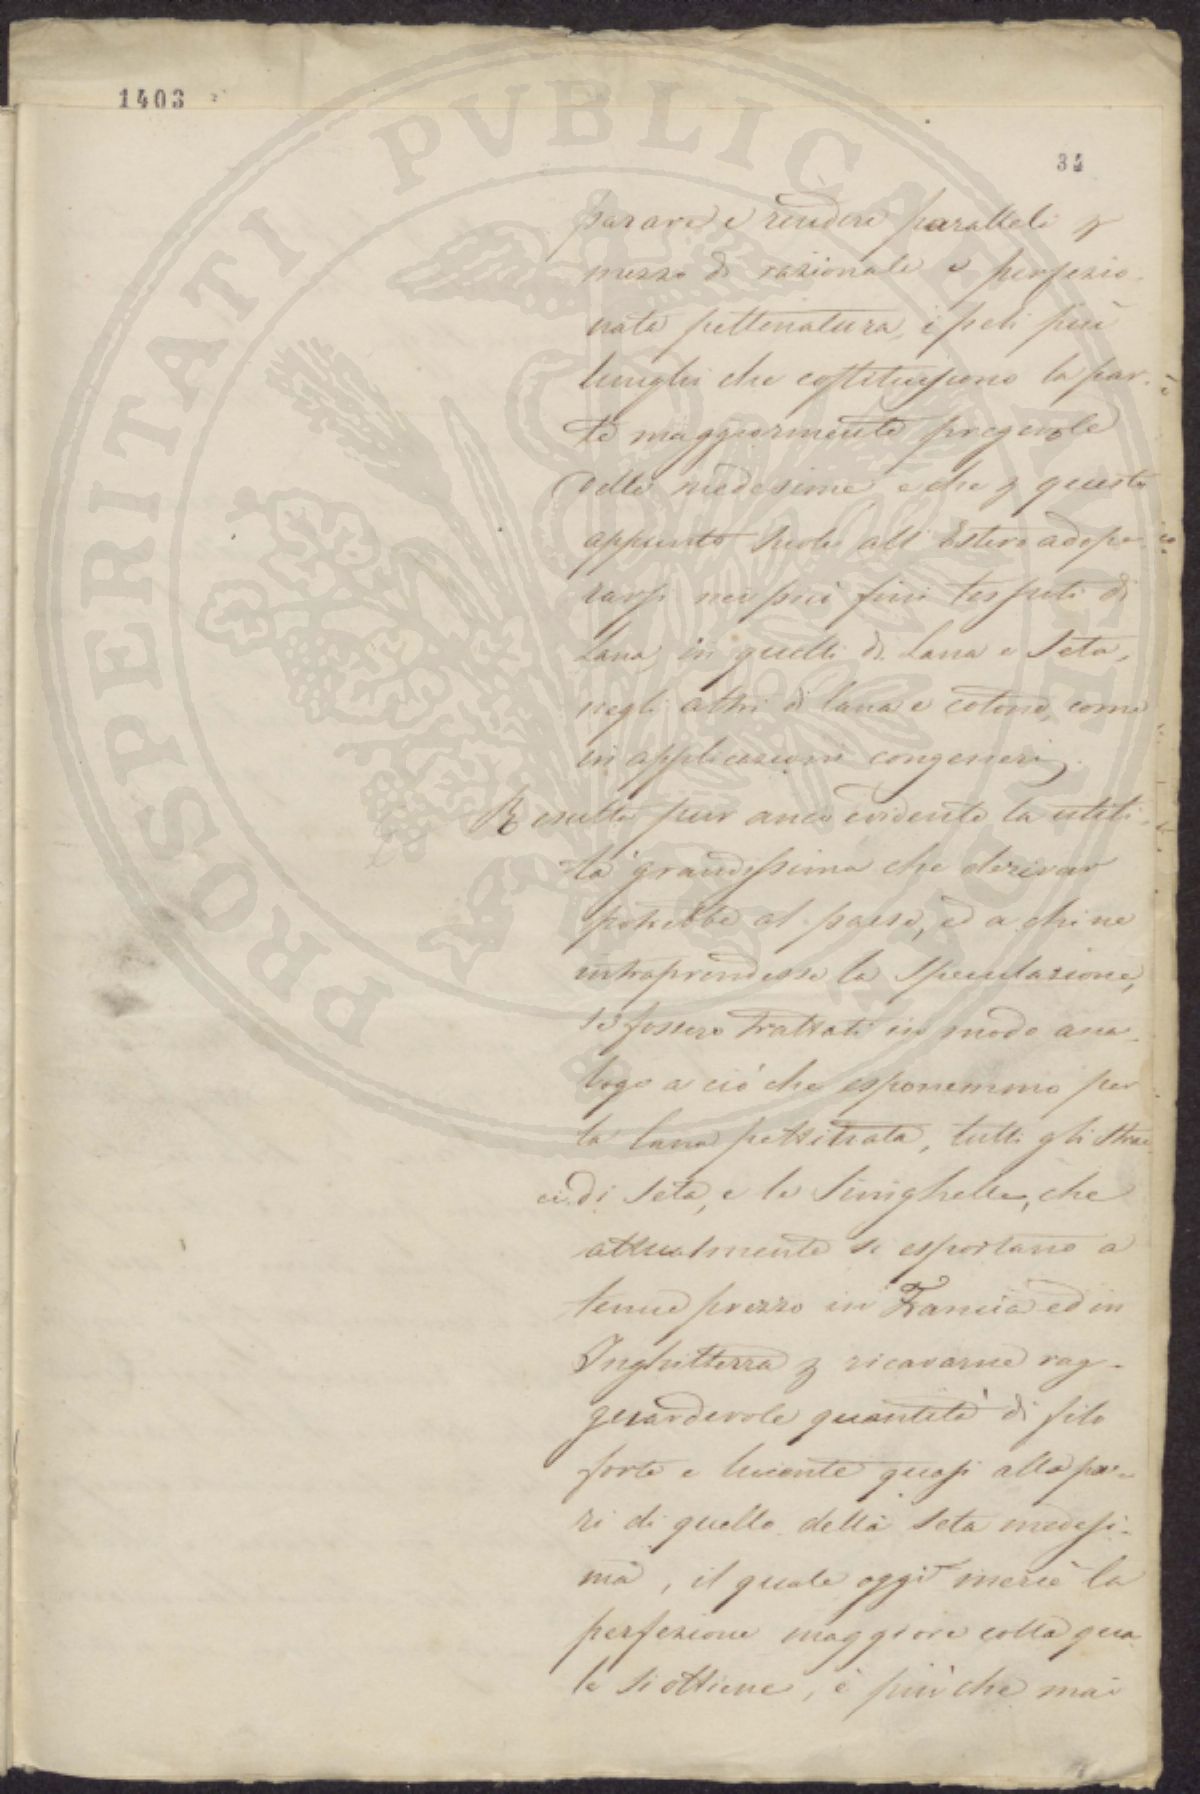 1403
34
parare e rendere paralleli p
mezzo di razionale e perfezio-
nata pettenatura, i peli più
lunghi che costituiscono la par-
te maggiormente pregevole
delle medesime e che p questo
appunto suole all'Estero adope-
rarsi nei più fini tessuti di
Lana, in quelli di Lana e Seta,
negli altri di lana e cotone, come
in applicazioni congeneri.
Resulta pur anco evidente la utili-
tà grandissima che derivar
potrebbe al paese, ed a chi ne
intraprendesse la Speculazione,
se fossero trattati in modo ana-
logo a ciò che esponemmo per
la lana pettinata, tutti gli strac
ci di Seta, e le Sinighelle, che
attualmente si esportano a
tenue prezzo in Francia ed in
Inghilterra p ricavarne rag-
guardevole quantità di filo
forte e lucente quasi alla pa-
ri di quello della Seta medesi-
ma, il quale oggi mercè la
perfezione maggiore colla qua
le si ottiene, è più che mai
PROSPERITATI PVBLICAE AVGENDAE